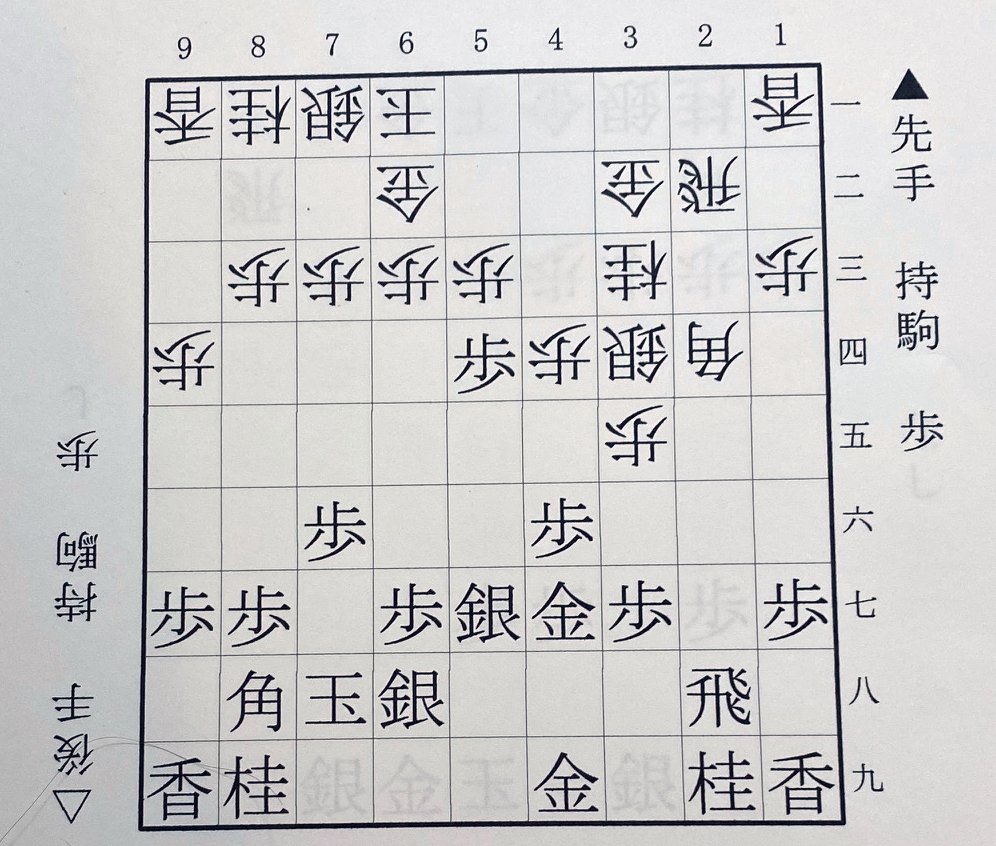 9 8 7 6 5 4 3 2 1
香 桂 銀 王 香 一
金 金 飛 二
歩 歩 歩 歩 桂 歩 三
歩 歩 歩 銀 角 四
歩 五
歩 歩 六
歩 歩 歩 銀 金 歩 歩 七
角 玉 銀 飛 八
香 桂 金 桂 香 九
▲先手 持駒 歩
△後手 持駒 歩